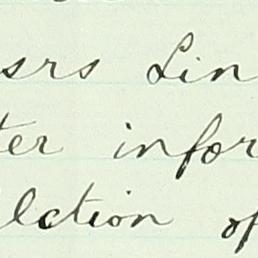 srs Lin
ter infor
lction of